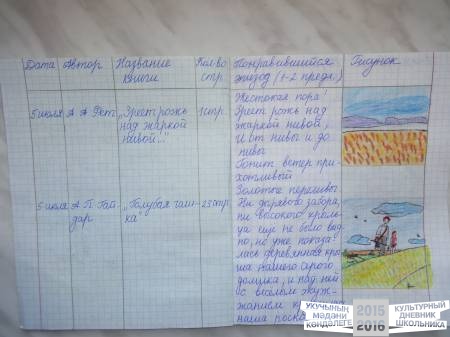 Дата
Автор
Название
книги
Кол-во
стр.
Понравившийся
эпизод (1-2 предл.)
Рисунок
5 июля
А А Фет
„Зреет рожь
над жаркой
нивой..."
1стр.
Жестокая пора!
Зреет рожь над
жаркой нивой,
И от нивы и до
нивы
Гонит ветер при-
хотливый
Золотые переливы.
5 июля
А П. Гай-
дар
„Голубая чаш-
ка"
23стр.
Ни дырявого забора,
ни высокого крыль-
ца еще не было вид-
но, но уже показа-
лась деревянная кры-
ша нашего серого
домика, и над ней
с веселым жуж-
жанием
наша
УКУЧЫНЫҢ
МӘДӘНИ
КӨНДӘЛЕГЕ
2015
2016
КУЛЬТУРНЫЙ
ДНЕВНИК
ШКОЛЬНИКА